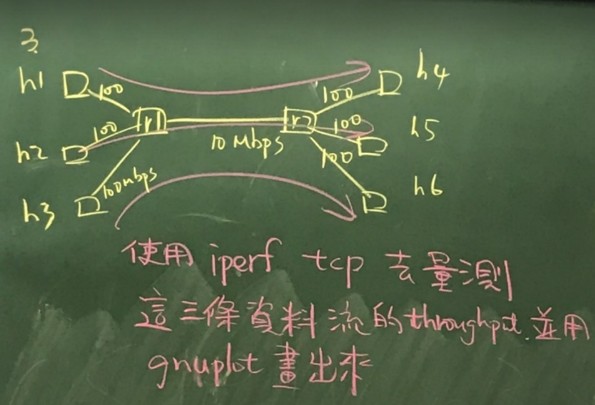 3.
h1 100 100 h4
r1 r2
h2 100 10 Mbps 100 h5
h3 100Mbps 100 h6
使用 iperf tcp 去量測
這三條資料流的 throughput. 並用
gnuplot 畫出來